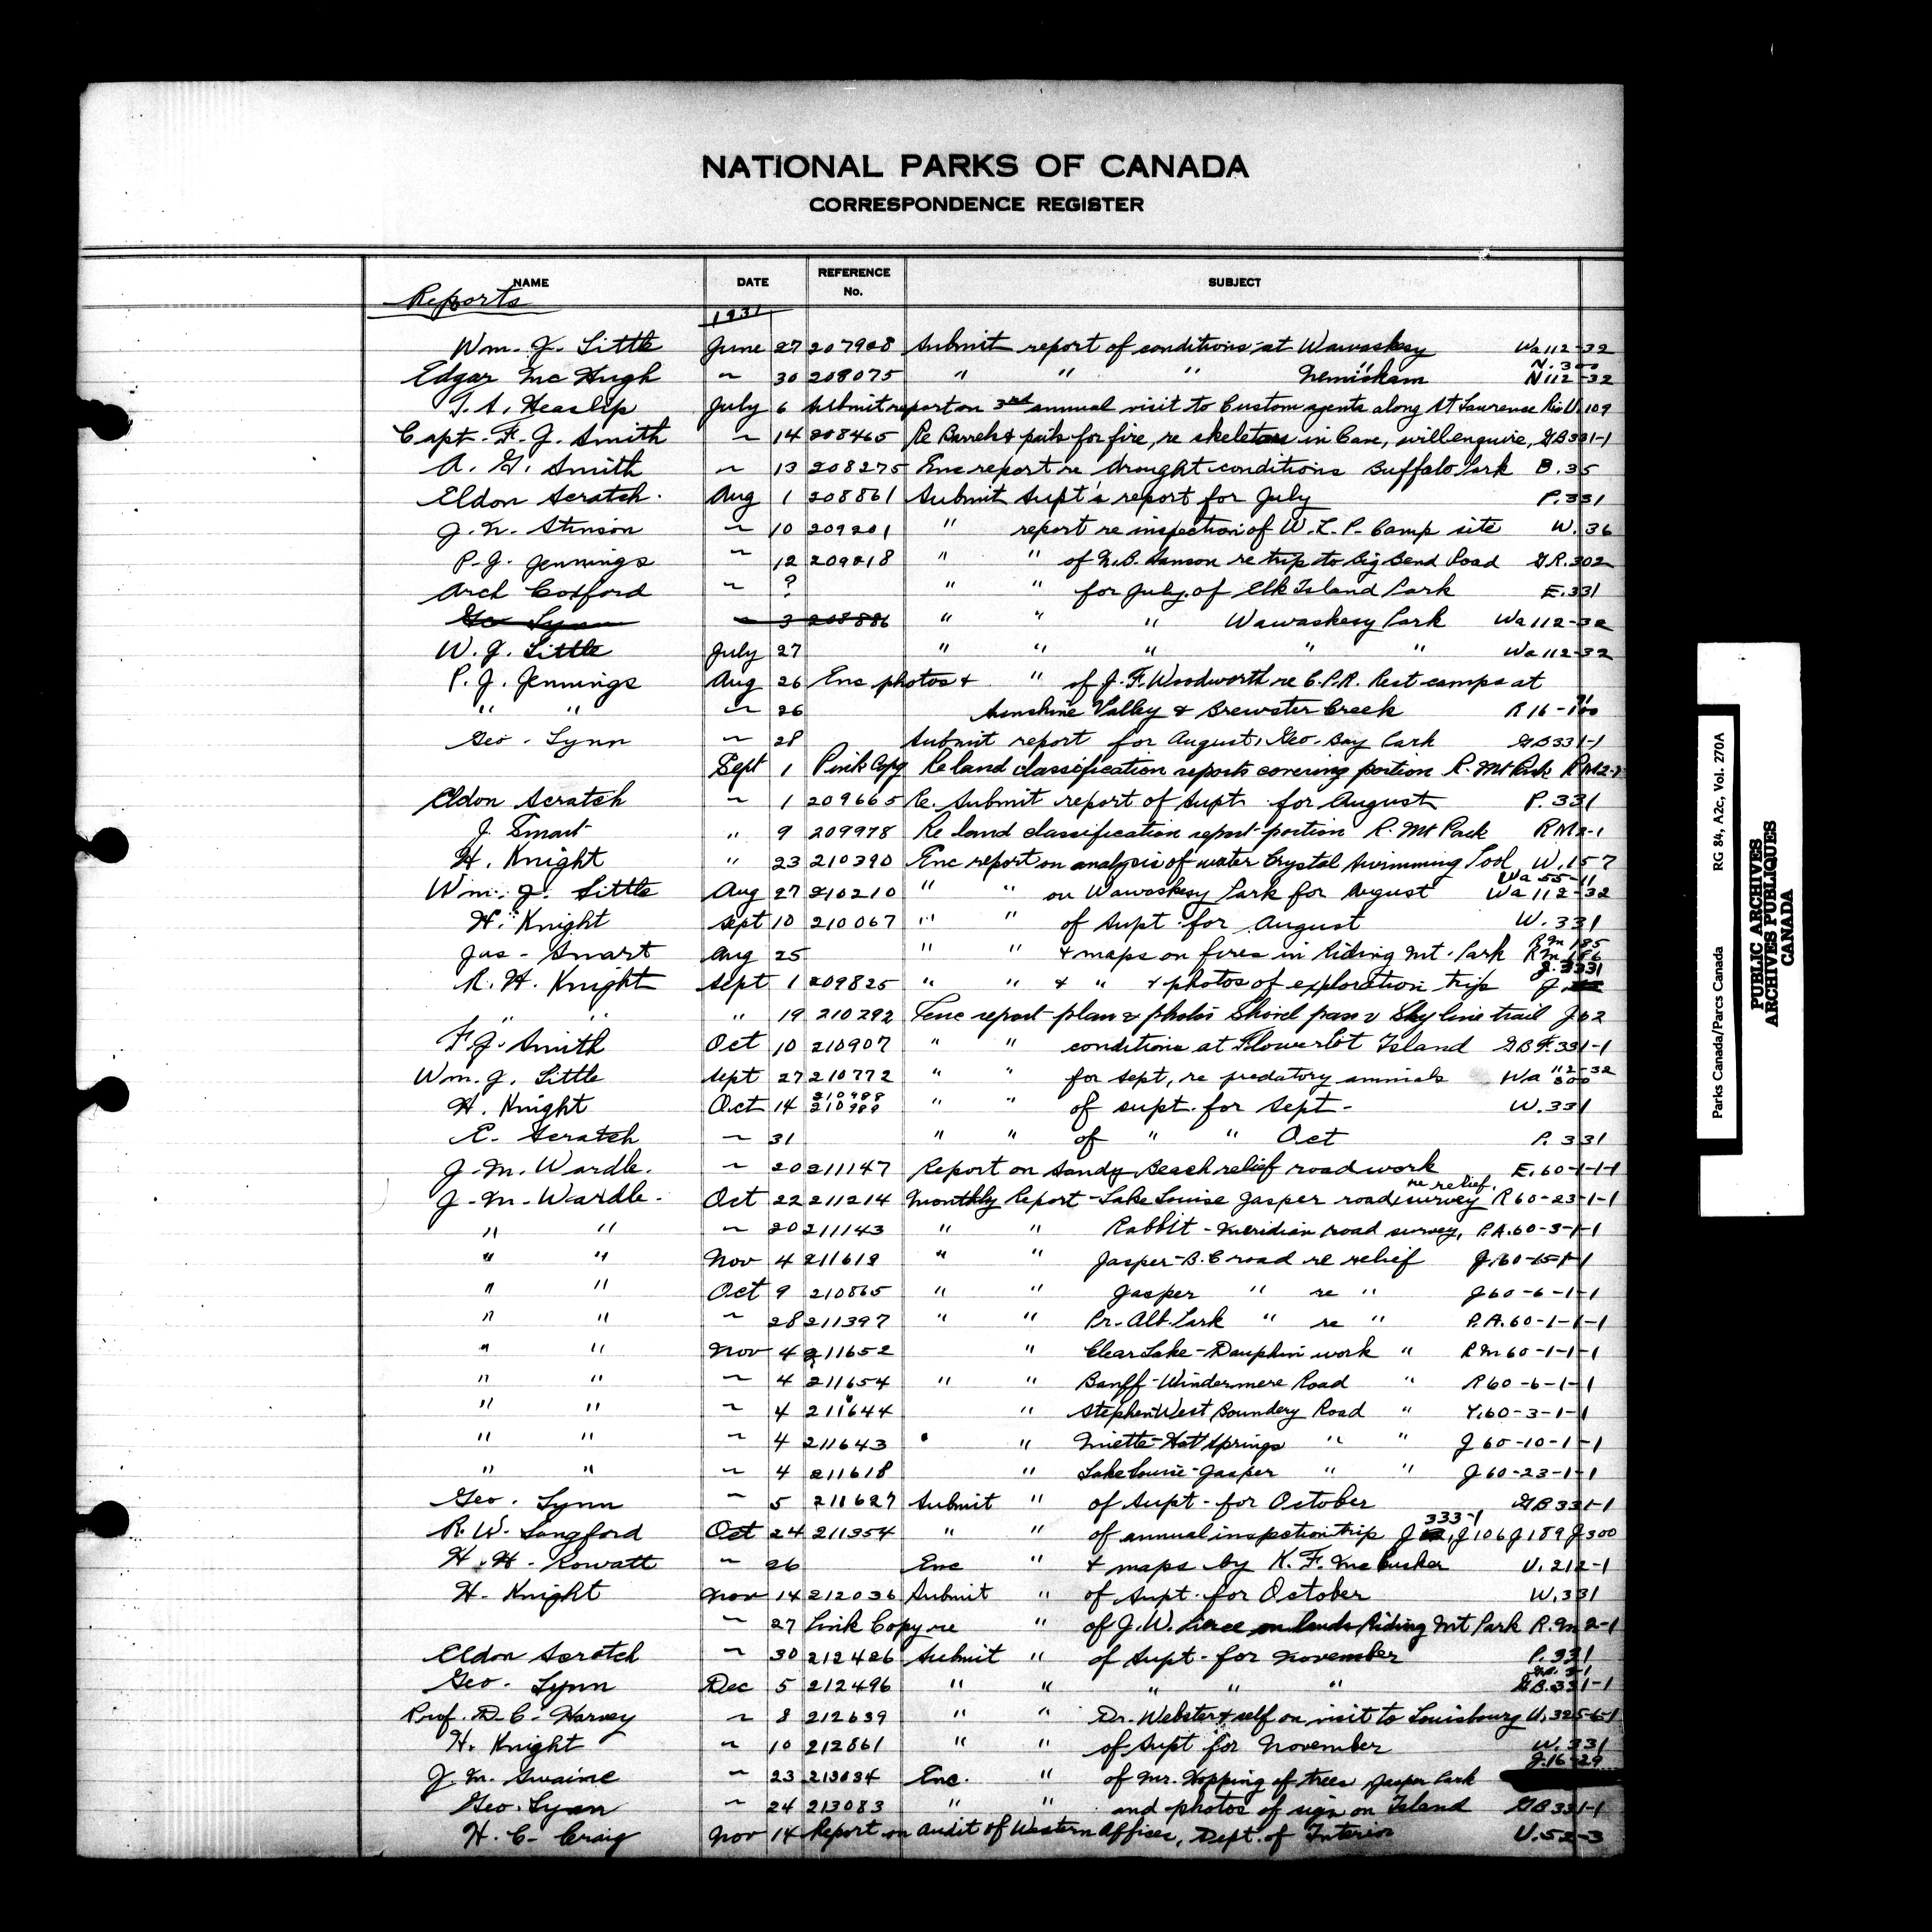 NATIONAL PARKS OF CANADA
CORRESPONDENCE REGISTER
NAME DATE REFERENCE No. SUBJECT
Reports
1931
Wm. J. Little June 27 207928 Submit report of conditions at Wawaskesy Wa 112-32
N. 300
Edgar McHugh " 30 208075 " " " " Nemiskam N 112-32
T. A. Heaslip July 6 Submit report on 3rd annual visit to Custom agents along St Lawrence Riv U. 109
Capt. F. J. Smith " 14 208465 Re Barrels & pails for fire, re skeletons in Cave, will enquire, GB 331-1
A. G. Smith " 13 208275 Enc report re drought conditions Buffalo Park B. 35
Eldon Scratch. Aug 1 208861 Submit Supt's report for July P. 331
J. N. Stinson " 10 209201 " report re inspection of W.L.P. Camp site W. 36
P. J. Jennings " 12 209218 " " of N.B. Sanson re trip to Big Bend Road GR. 302
Arch Coxford " ? " " for July, of Elk Island Park E. 331
Geo Lynn " 3 208886 " " " Wawaskesy Park Wa 112-32
W. J. Little July 27 " " " " " Wa 112-32
P. J. Jennings Aug 26 Enc photos & " of J. F. Woodworth re C.P.R. Rest camps at
" " " 26 Sunshine Valley & Brewster Creek R 16-100
Geo. Lynn " 28 Submit report for August, Geo. Bay Park GB 331-1
Sept 1 Pink Copy Re land classification reports covering portion R. Mt Park RM2-1
Eldon Scratch " 1 209665 Re. Submit report of Supt. for August P. 331
J. Smart " 9 209978 Re land classification report portion R. Mt Park RM2-1
H. Knight " 23 210390 Enc report on analysis of water Crystal Swimming Pool W. 157
Wa 55-11
Wm. J. Little Aug 27 210210 " " on Wawaskesy Park for August Wa 112-32
H. Knight Sept 10 210067 " " of Supt. for August W. 331
Rm 185
Jas. Smart Aug 25 " " & maps on fires in Riding Mt. Park Rm 186
J. 3331
R. H. Knight Sept 1 209825 " " & " & photos of exploration trip J.
" " " 19 210292 Enc report plan & photos Shovel pass & Skyline trail J 62
F. J. Smith Oct 10 210907 " " conditions at Flowerpot Island GBF. 331-1
Wm. J. Little Sept 27 210772 " " for Sept, re predatory animals Wa 112-32 300
210988
H. Knight Oct 14 210989 " " of supt. for Sept. W. 331
E. Scratch " 31 " " of " " Oct P. 331
J. M. Wardle. " 20 211147 Report on Sandy Beach relief road work E. 60-1-1-1
J. M. Wardle. Oct 22 211214 Monthly Report - Lake Louise Jasper road survey re relief. R 60-23-1-1
" " " 20 211143 " " Rabbit - Meridian road survey, P.A. 60-3-1-1
" " Nov 4 211619 " " Jasper-B.C road re relief J. 60-15-1-1
" " Oct 9 210865 " " Jasper " re " J 60-6-1-1
" " " 28 211397 " " Pr. Alb. Park " re " P.A. 60-1-1-1
" " Nov 4 211652 " Clear Lake-Dauphin work " Rm 60-1-1-1
" " " 4 211654 " " Banff-Windermere Road " R 60-6-1-1
" " " 4 211644 " Stephen West Boundery Road " Y. 60-3-1-1
" " " 4 211643 " Miette Hot Springs " " J 60-10-1-1
" " " 4 211618 " Lake Louise-Jasper " " J 60-23-1-1
Geo. Lynn " 5 211627 Submit " of Supt. for October GB 331-1
333-1
R. W. Langford Oct 24 211354 " " of annual inspection trip J , J 106 J 189 J 300
H. H. Rowatt " 26 Enc " & maps by K. F. McCusker U. 212-1
H. Knight Nov 14 212036 Submit " of Supt. for October W. 331
" 27 Pink Copy re " of J. W. Pierce on lands Riding Mt Park R.M 2-1
Eldon Scratch " 30 212426 Submit " of Supt. for November P. 331
Geo. Lynn Dec 5 212496 " " " " " GB. 331-1
Prof. D. C. Harvey " 8 212639 " " Dr. Webster & self on visit to Louisbourg U. 325-6-1
H. Knight " 10 212861 " " of Supt for November W. 331
J. 16-29
J. M. Swaine " 23 213034 Enc. " of Mr. Hopping of trees Jasper Park
Geo. Lynn " 24 213083 " " and photos of sign on Island GB 331-1
H. C. Craig Nov 14 Report on Audit of Western Offices, Dept. of Interior U. 52-3
Parks Canada/Parcs Canada RG 84, A2c, Vol. 270A
PUBLIC ARCHIVES
ARCHIVES PUBLIQUES
CANADA